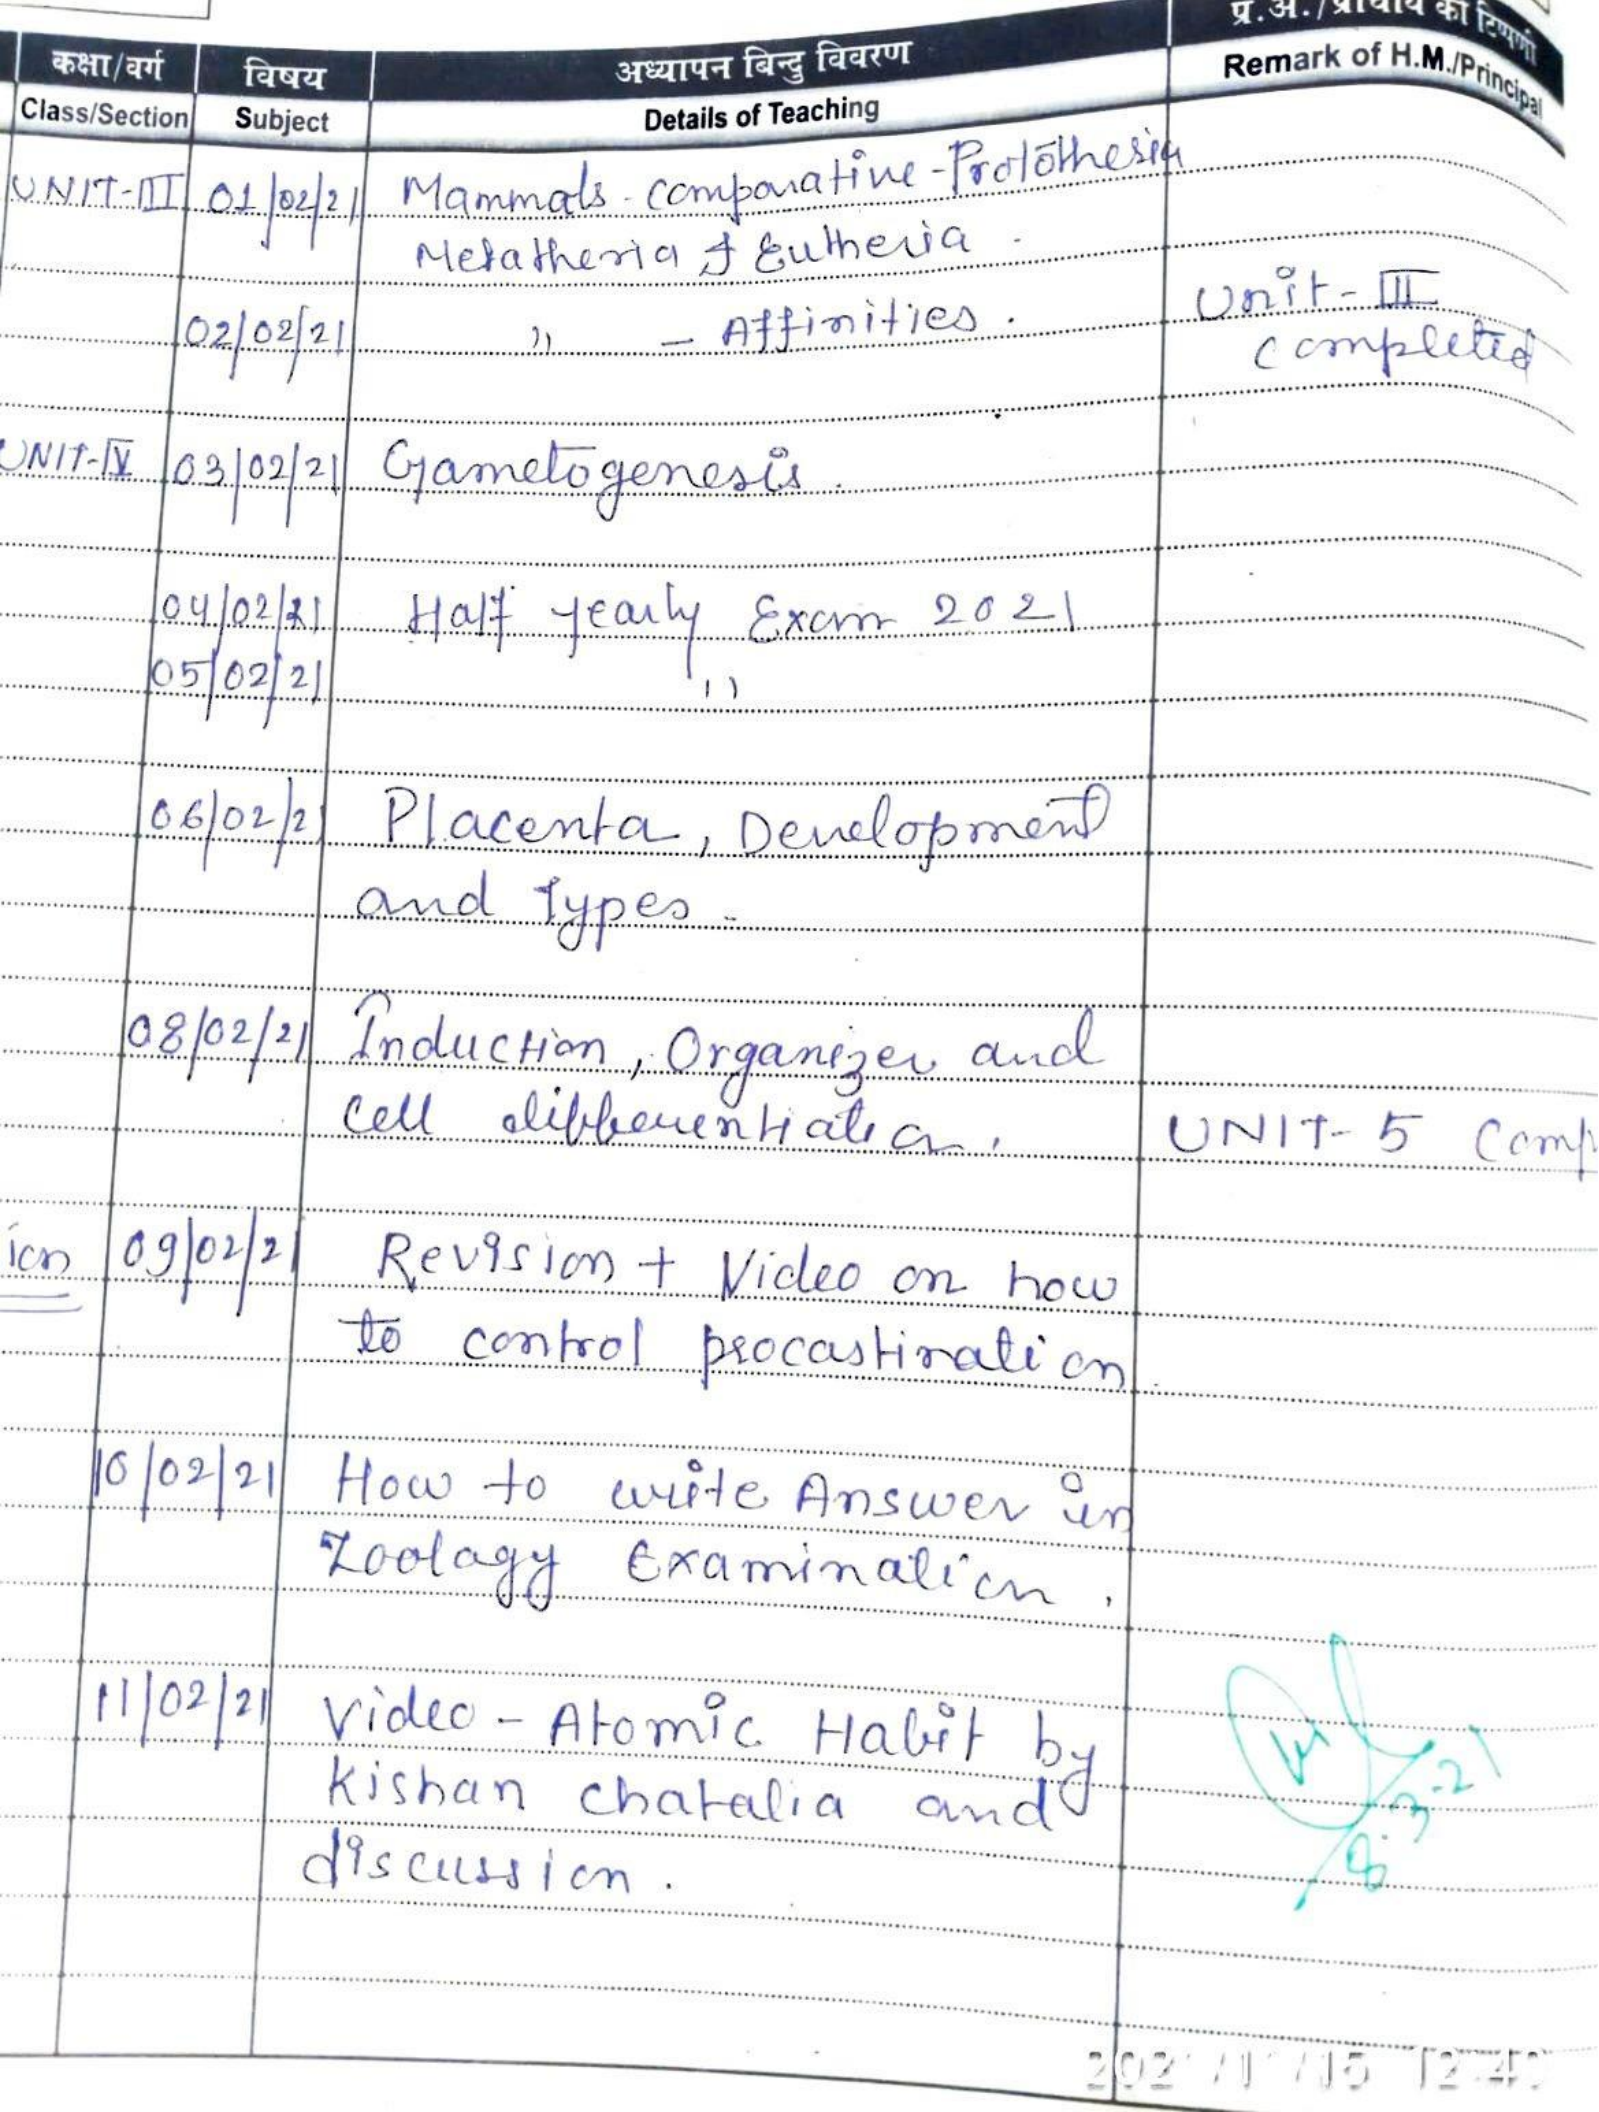 प्र.अ./प्राचार्य की टिप्पणी
कक्षा/वर्ग विषय अध्यापन बिन्दु विवरण Remark of H.M./Principal
Class/Section Subject Details of Teaching
UNIT-III 01/02/21 Mammals - comparative - Prototheria
Metatheria & Eutheria.
02/02/21 " - Affinities. Unit-III
completed
UNIT-IV 03/02/21 Gametogenesis.
04/02/21 Half yearly Exam 2021
05/02/21 "
06/02/21 Placenta, Development
and Types.
08/02/21 Induction, Organizer and
cell differentiation. UNIT-5 Comp
ion 09/02/21 Revision + Video on how
to control procastination.
10/02/21 How to write Answer in
Zoology Examination.
11/02/21 Video - Atomic Habit by
Kishan chatalia and
discussion.
8-3-21
12:40